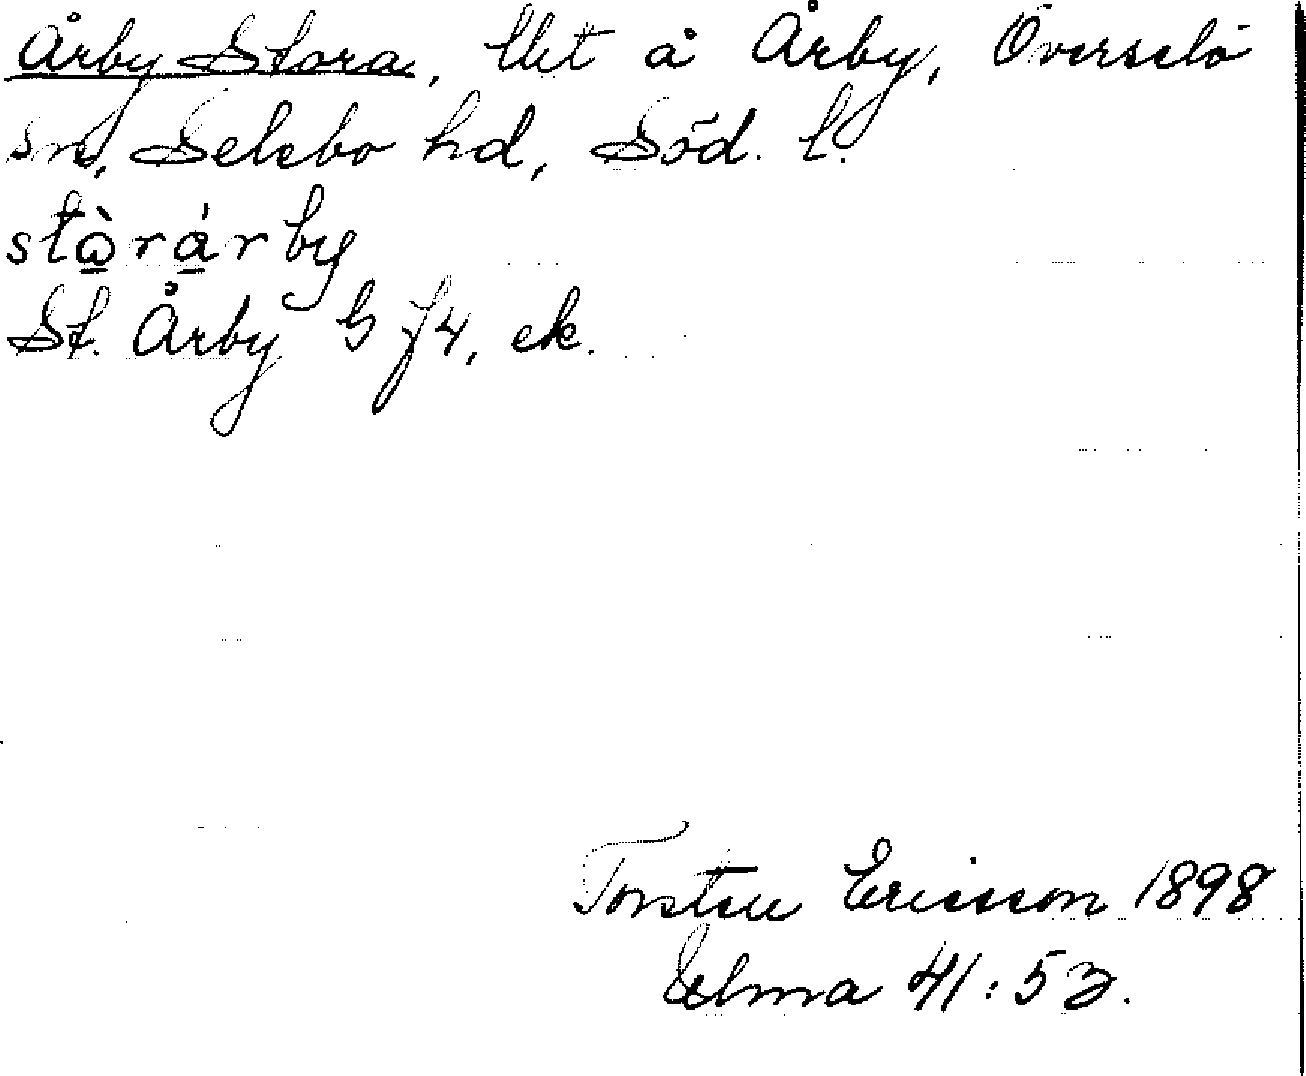 Årby Stora, lht å Årby, Överselö
sn, Selebo hd, Söd. l.
stò̱rá̱rby
St. Årby G f4, ek.
Torsten Ericsson 1898
Selma 41:53.